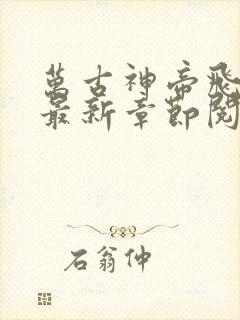 萬古神帝飛
最新章節閱
石翁仲